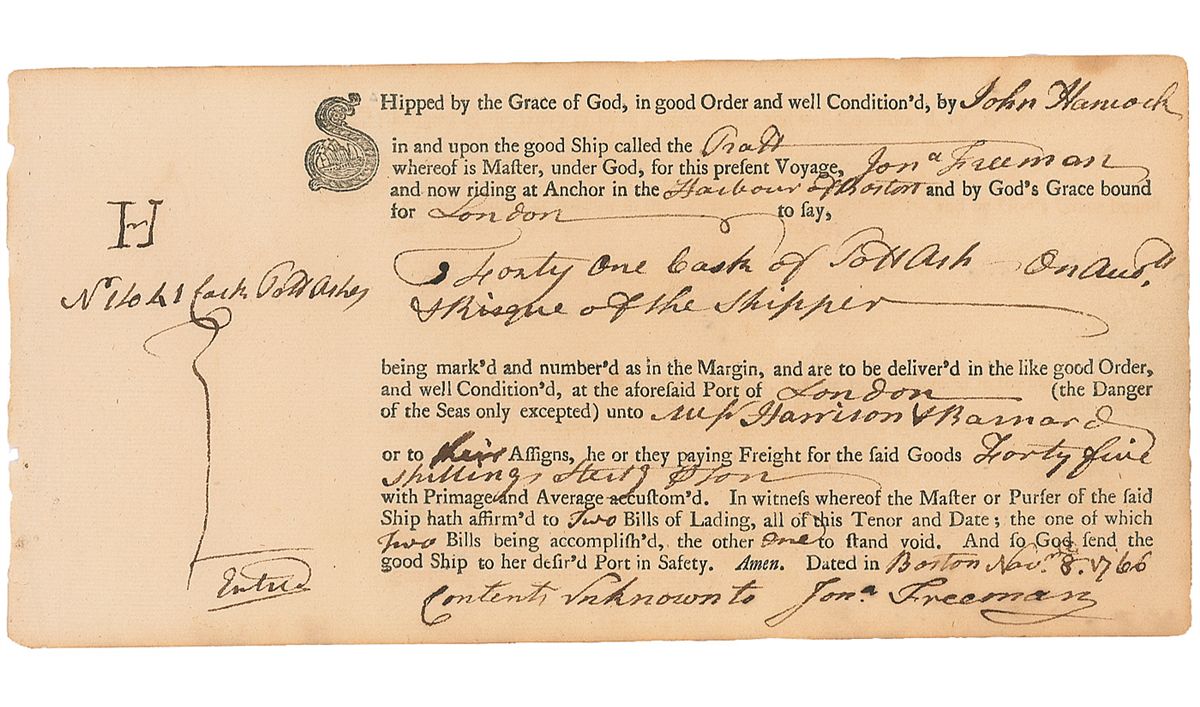 SHipped by the Grace of God, in good Order and well Condition'd, by John Hancock
in and upon the good Ship called the Pratt
whereof is Maſter, under God, for this preſent Voyage, Jonᵃ Freeman
and now riding at Anchor in the Harbour of Boston and by God's Grace bound
for London to ſay,
H
Forty One Cask of Pott Ash On Accoᵗᵗ
Nº 1 to 41 Cask Pott Ashes
& Risque of the Shipper
being mark'd and number'd as in the Margin, and are to be deliver'd in the like good Order,
and well Condition'd, at the aforeſaid Port of London (the Danger
of the Seas only excepted) unto Meſs Harrison & Barnard
or to their Aſſigns, he or they paying Freight for the ſaid Goods Forty five
Shillings Sterlg ⅌ Ton
with Primage and Average accuſtom'd. In witneſs whereof the Maſter or Purſer of the ſaid
Ship hath affirm'd to Two Bills of Lading, all of this Tenor and Date; the one of which
Two Bills being accompliſh'd, the other One to ſtand void. And ſo God ſend the
good Ship to her deſir'd Port in Safety. Amen. Dated in Boston Novʳ 8. 1766
Contents Unknown to Jonᵃ Freeman
Entred